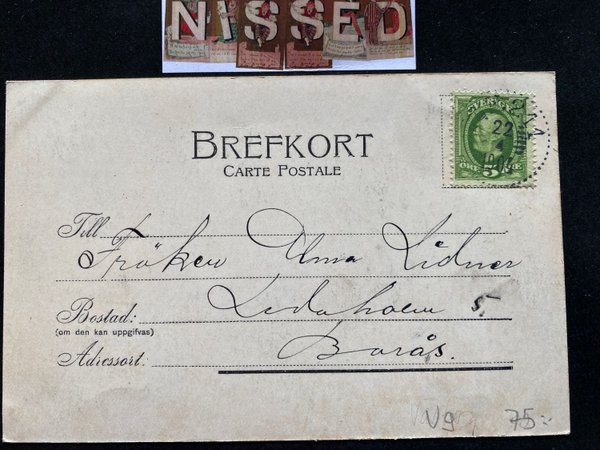 NISSED
BREFKORT
CARTE POSTALE
SVERIGE
22
4
ÖRE 5 ÖRE
Till
Fröken Alma Lidner
Bostad:
(om den kan uppgifvas)
5
Adressort.
Borås.
Vg 75:-